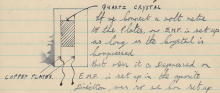 QUARTZ CRYSTAL
If we connect a volt meter
to the Plates, an E.M.F. is set up
as long as the Crystal is
compressed
But when it is squeezed on
COPPER PLATES.
E.M.F. is set up in the opposite
direction